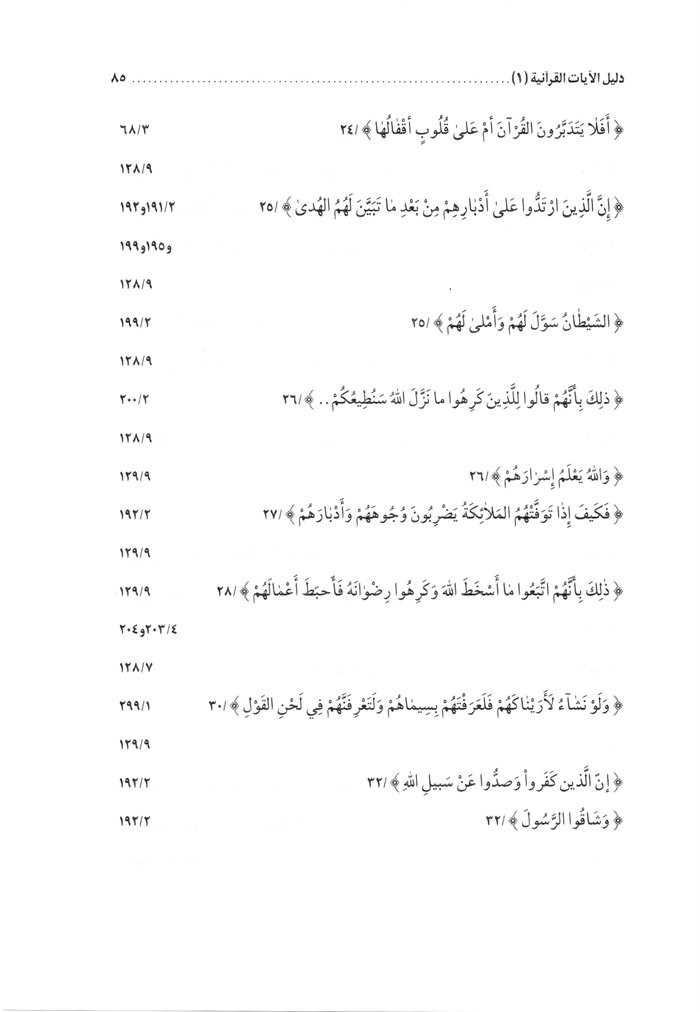 دليل الآيات القرآنية (١) ........................................................ ٨٥
﴿ أَفَلَا يَتَدَبَّرُونَ القُرْآنَ أمْ عَلىٰ قُلُوبٍ أقْفٰالُهٰا ﴾ /٢٤ ٦٨/٣
١٢٨/٩
﴿ إِنَّ الَّذِينَ ارْتَدُّوا عَلىٰ أَدْبٰارِهِمْ مِنْ بَعْدِ مٰا تَبَيَّنَ لَهُمُ الهُدىٰ ﴾ /٢٥ ١٩١/٢و١٩٢
و١٩٥و١٩٩
١٢٨/٩
﴿ الشَيْطٰانُ سَوَّلَ لَهُمْ وَأَمْلىٰ لَهُمْ ﴾ /٢٥ ١٩٩/٢
١٢٨/٩
﴿ ذٰلِكَ بِأَنَّهُمْ قالُوا لِلَّذِينَ كَرِهُوا ما نَزَّلَ اللهُ سَنُطِيعُكُمْ.. ﴾ /٢٦ ٢٠٠/٢
١٢٨/٩
﴿ وَاللهُ يَعْلَمُ إِسْرٰارَهُمْ ﴾ /٢٦ ١٢٩/٩
﴿ فَكَيفَ إِذٰا تَوَفَّتْهُمُ المَلاٰئِكَةُ يَضْرِبُونَ وُجُوهَهُمْ وَأَدْبٰارَهُمْ ﴾ /٢٧ ١٩٢/٢
١٢٩/٩
﴿ ذٰلِكَ بِأَنَّهُمْ اتَّبَعُوا مٰا أَسْخَطَ اللهَ وَكَرِهُوا رِضْوٰانَهُ فَأَحبَطَ أَعْمٰالَهُمْ ﴾ /٢٨ ١٢٩/٩
٢٠٣/٤و٢٠٤
١٢٨/٧
﴿ وَلَوْ نَشٰآءُ لَأَرَيْنٰاكَهُمْ فَلَعَرَفْتَهُمْ بِسِيمٰاهُمْ وَلَتَعْرِفَنَّهُمْ فِي لَحْنِ القَوْلِ ﴾ /٣٠ ٢٩٩/١
١٢٩/٩
﴿ إنّ الَّذين كَفَرواْ وَصدُّوا عَنْ سَبيلِ اللهِ ﴾ /٣٢ ١٩٢/٢
﴿ وَشَاقُوا الرَّسُولَ ﴾ /٣٢ ١٩٢/٢